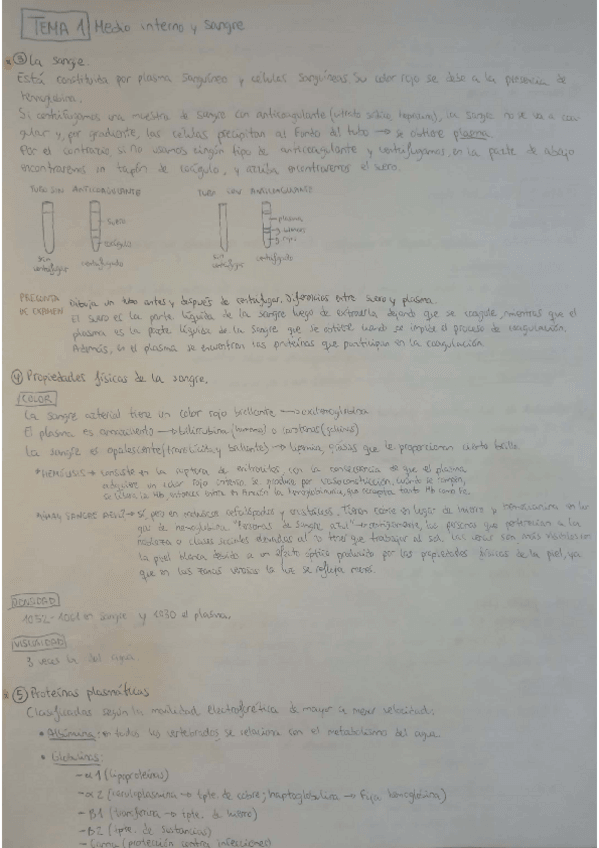 TEMA 1 Medio interno y sangre
③ La sangre.
Está constituida por plasma sanguíneo y células sanguíneas. Su color rojo se debe a la presencia de
hemoglobina.
Si centrifugamos una muestra de sangre con anticoagulante (citrato sódico, heparina), la sangre no se va a coa
gular y, por gradiente, las células precipitan al fondo del tubo → se obtiene plasma
Por el contrario si no usamos ningún tipo de anticoagulante y centrifugamos, en la parte de abajo
encontraremos un tapón de coágulo, y arriba encontraremos el suero.
TUBO SIN ANTICOAGULANTE TUBO CON ANTICOAGULANTE
suero
coágulo
plasma
g. blancos
g. rojos
sin centrifugar
centrifugado
sin centrifugar
centrifugado
PREGUNTA DE EXAMEN
Dibuja un tubo antes y después de centrifugar. Diferencias entre suero y plasma.
El suero es la parte líquida de la sangre luego de extraerla, dejando que se coagule, mientras que el
plasma es la parte líquida de la sangre que se obtiene cuando se impide el proceso de coagulación.
Además, en el plasma se encuentran las proteínas que participan en la coagulación.
④ Propiedades físicas de la sangre.
COLOR
La sangre arterial tiene un color rojo brillante → oxihemoglobina
El plasma es amarillento → bilirrubina (humano) o carotenos
La sangre es opalescente (translúcida y brillante) → lipemia, grasas que le proporcionan cierto brillo.
*HEMÓLISIS → consiste en la ruptura de eritrocitos, con la consecuencia de que el plasma
adquiere un color rojo intenso. Se produce por
se libera la Hb, entonces entra en función la
SANGRE AZUL? → Sí, pero en moluscos cefalópodos y crustáceos. Tienen cobre en lugar de hierro y hemocianina en lu
gar de hemoglobina. "Personas de sangre azul" → las personas que pertenecían a la
nobleza o clases sociales elevadas al no tener que trabajar al sol, las venas son más visibles en
la piel blanca debido a un efecto óptico producido por las propiedades físicas de la piel, ya
que en las zonas venosas la luz se refleja menos.
DENSIDAD
1052-1061 en sangre y 1030 el plasma.
VISCOSIDAD
3 veces la del agua.
⑤ Proteínas plasmáticas
Clasificadas según la movilidad electroforética de mayor a menor velocidad:
• Albúmina: en todos los vertebrados se relaciona con el metabolismo del agua.
• Globulinas:
- α1 (lipoproteínas)
- α2 (ceruloplasmina → tpte. de cobre; haptoglobulina → fija hemoglobina)
- B1 (transferrina → tpte. de hierro)
- B2 (tpte. de sustancias)
- Gamma (protección contra infecciones)